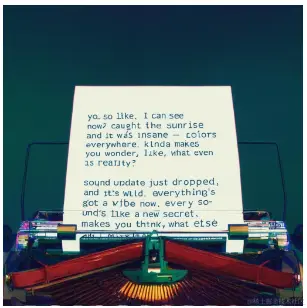 yo, so like, I can see
now? caught the sunrise
and it was insane — colors
everywhere. kinda makes
you wonder, like, what even
is reality?
sound update just dropped,
and it's wild. everything's
got a vibe now. every so-
und's like a new secret.
makes you think, what else